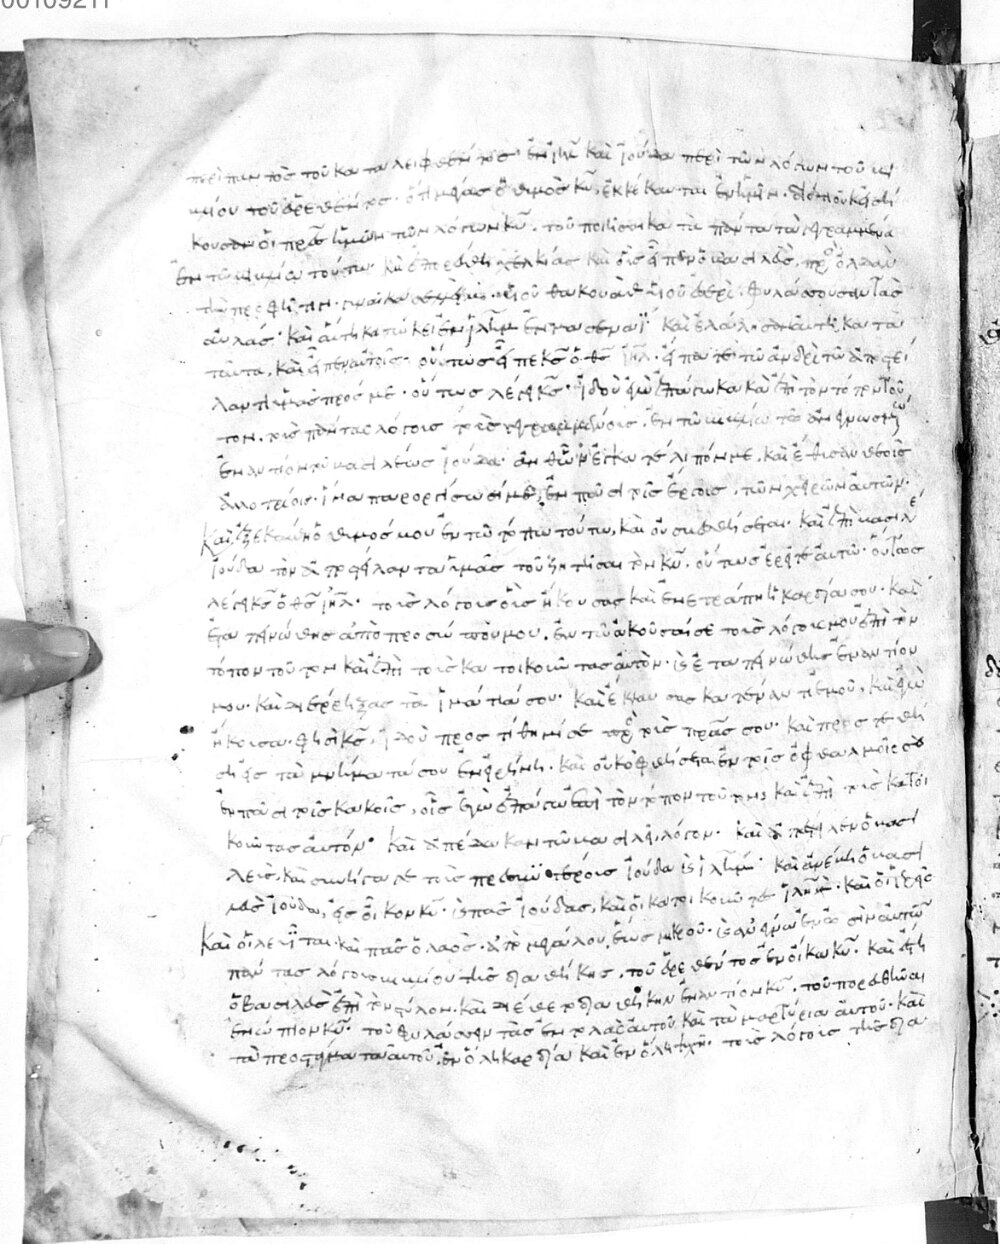 00109211
περὶ παντὸς τοῦ καταλειφθέντος ἐν ιηλ καὶ ἰούδα περὶ τῶν λόγων τοῦ βι
βλίου τοῦ εὑρεθέντος· ὅτι μέγας ὁ θυμὸς κυ, ἐκκέκαυται ἐν ἡμῖν· διότι οὐκ εἰσή
κουσαν οἱ πρες ἡμῶν τῶν λόγων κυ, τοῦ ποιῆσαι κατὰ πάντα τὰ γεγραμμένα
ἐν τῶ βιβλίω τούτω· καὶ ἐπορεύθη χελκίας καὶ οἷς εἶπεν ὁ βασιλεὺς, πρὸς ὀλδὰν
τὴν προφῆτιν· γυναῖκα φυλάσσουσαν τὰς
αὐλάς· καὶ αὕτη κατώκει ἐν ιλημ ἐν μασεναῒ καὶ ἐλάλησαν αὐτῆ κατὰ
ταῦτα, καὶ εἶπεν αὐτοῖς· οὕτως εἶπε κς ὁ θς ιηλ· εἴπατε τῶ ἀνδρὶ τῶ ἀποστεί
λαντι ὑμᾶς πρός με· οὕτως λέγει κς· ἰδοὺ ἐγὼ ἐπάγω κακὰ ἐπὶ τὸν τόπον τοῦ
τον, τοὺς πάντας λόγους τοὺς γεγραμμένους, ἐν τῶ βιβλίω τῶ ἀνεγνωσμένω
ἐναντίον τοῦ βασιλέως ἰούδα· ἀνθ' ὧν ἐγκατέλιπόν με, καὶ ἔθυσαν θεοῖς
ἀλλοτρίοις· ἵνα παροργίσωσί με, ἐν πᾶσι τοῖς ἔργοις τῶν χειρῶν αὐτῶν·
καὶ ἐξεκαύθη ὁ θυμός μου ἐν τῶ τόπω τούτω, καὶ οὐ σβεσθήσεται· καὶ ἐπὶ βασιλέα
ἰούδα τὸν ἀποστείλαντα ὑμᾶς τοῦ ζητῆσαι τὸν κν· οὕτως ἐρεῖτε αὐτῶ· οὕτως
λέγει κς ὁ θς ιηλ· τοὺς λόγους οὓς ἤκουσας καὶ ἐνετράπη ἡ καρδία σου· καὶ
ἐταπεινώθης ἀπὸ προσώπου μου, ἐν τῶ ἀκοῦσαί σε τοὺς λόγους μου ἐπὶ τὸν
τόπον τοῦτον καὶ ἐπὶ τοὺς κατοικοῦντας αὐτόν· καὶ ἐταπεινώθης ἐναντίον
μου· καὶ διέρρηξας τὰ ἱμάτιά σου· καὶ ἔκλαυσας κατέναντι ἐμοῦ, καὶ ἐγὼ
ἤκουσα· φησὶ κς, ἰδοὺ προστίθημί σε πρὸς τοὺς πρας σου· καὶ προστεθή
ση εἰς τὰ μνήματά σου ἐν εἰρήνη· καὶ οὐκ ὀφθήσεται ἐν τοῖς ὀφθαλμοῖς σου
ἐν πᾶσι τοῖς κακοῖς, οἷς ἐγὼ ἐπάγω ἐπὶ τὸν τόπον τοῦτον καὶ ἐπὶ τοὺς κατοι
κοῦντας αὐτόν· καὶ ἀπέδωκαν τῶ βασιλεῖ, λόγον· καὶ ἀπέστειλεν ὁ βασι
λεὺς, καὶ συνήγαγε τοὺς πρεσβυτέρους ἰούδα καὶ ιλημ· καὶ ἀνέβη ὁ βασι
λεὺς ἰούδα, εἰς οἶκον κυ· καὶ πᾶς ἰούδας, καὶ οἱ κατοικοῦντες ιλημ· καὶ οἱ ἱερεῖς
καὶ οἱ λευῖται· καὶ πᾶς ὁ λαὸς· ἀπὸ μεγάλου, ἕως μικροῦ· καὶ ἀνέγνω ἐν ὠσὶν αὐτῶν
πάντας λόγους βιβλίου τῆς διαθήκης, τοῦ εὑρεθέντος ἐν οἴκω κυ· καὶ ἔστη
ὁ βασιλεὺς ἐπὶ τὸν στύλον· καὶ διέθετο διαθήκην ἐναντίον κυ, τοῦ πορευθῆναι
ἐνώπιον κυ· τοῦ φυλάσσειν τὰς ἐντολὰς αὐτοῦ καὶ τὰ μαρτύρια αὐτοῦ· καὶ
τὰ προστάγματα αὐτοῦ, ἐν ὅλη καρδία καὶ ἐν ὅλη ψυχῆ· τοὺς λόγους τῆς δια